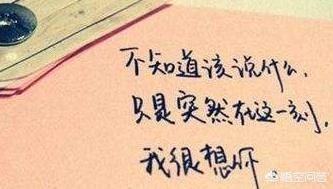 不知道该说什么，
只是突然在这一刻，
我很想你
悟空问答